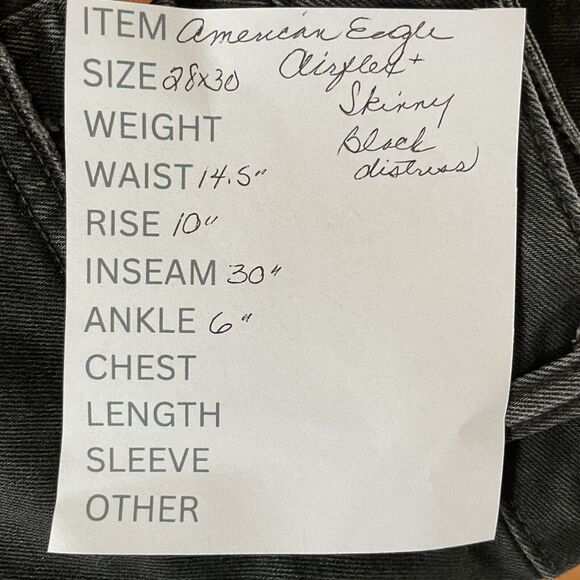 ITEM American Eagle
SIZE 28x30 Airflex+
Skinny
WEIGHT Black
WAIST 14.5" distress
RISE 10"
INSEAM 30"
ANKLE 6"
CHEST
LENGTH
SLEEVE
OTHER